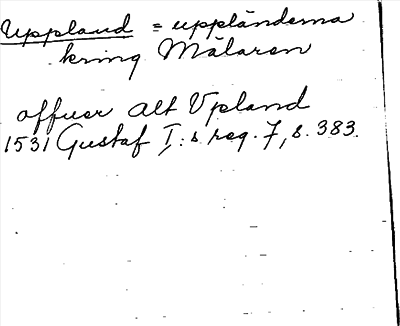 Uppland = uppländerna
kring Mälaren
offuer alt Vpland
1531 Gustaf I:s reg. 7, s. 383.